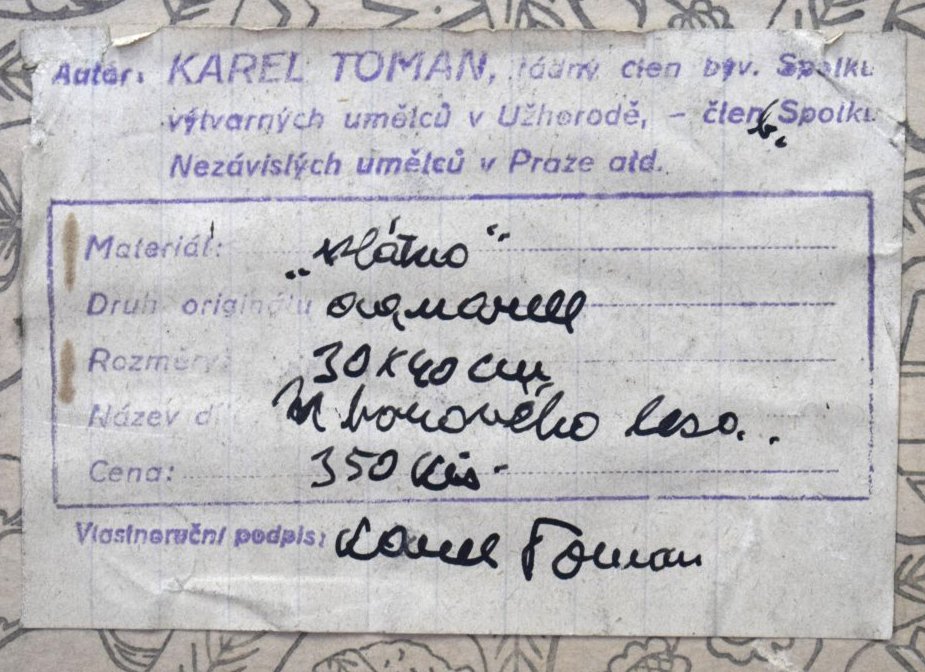 Autor: KAREL TOMAN, řádný člen býv. Spolku
výtvarných umělců v Užhorodě, – člen b. Spolku
Nezávislých umělců v Praze atd.
Materiál: „Plátno“
Druh originálu akvarell
Rozměry: 30x40 cm
Název dí Z borového lesa..
Cena: 350 Kčs-
Vlastnoruční podpis: Karel Toman